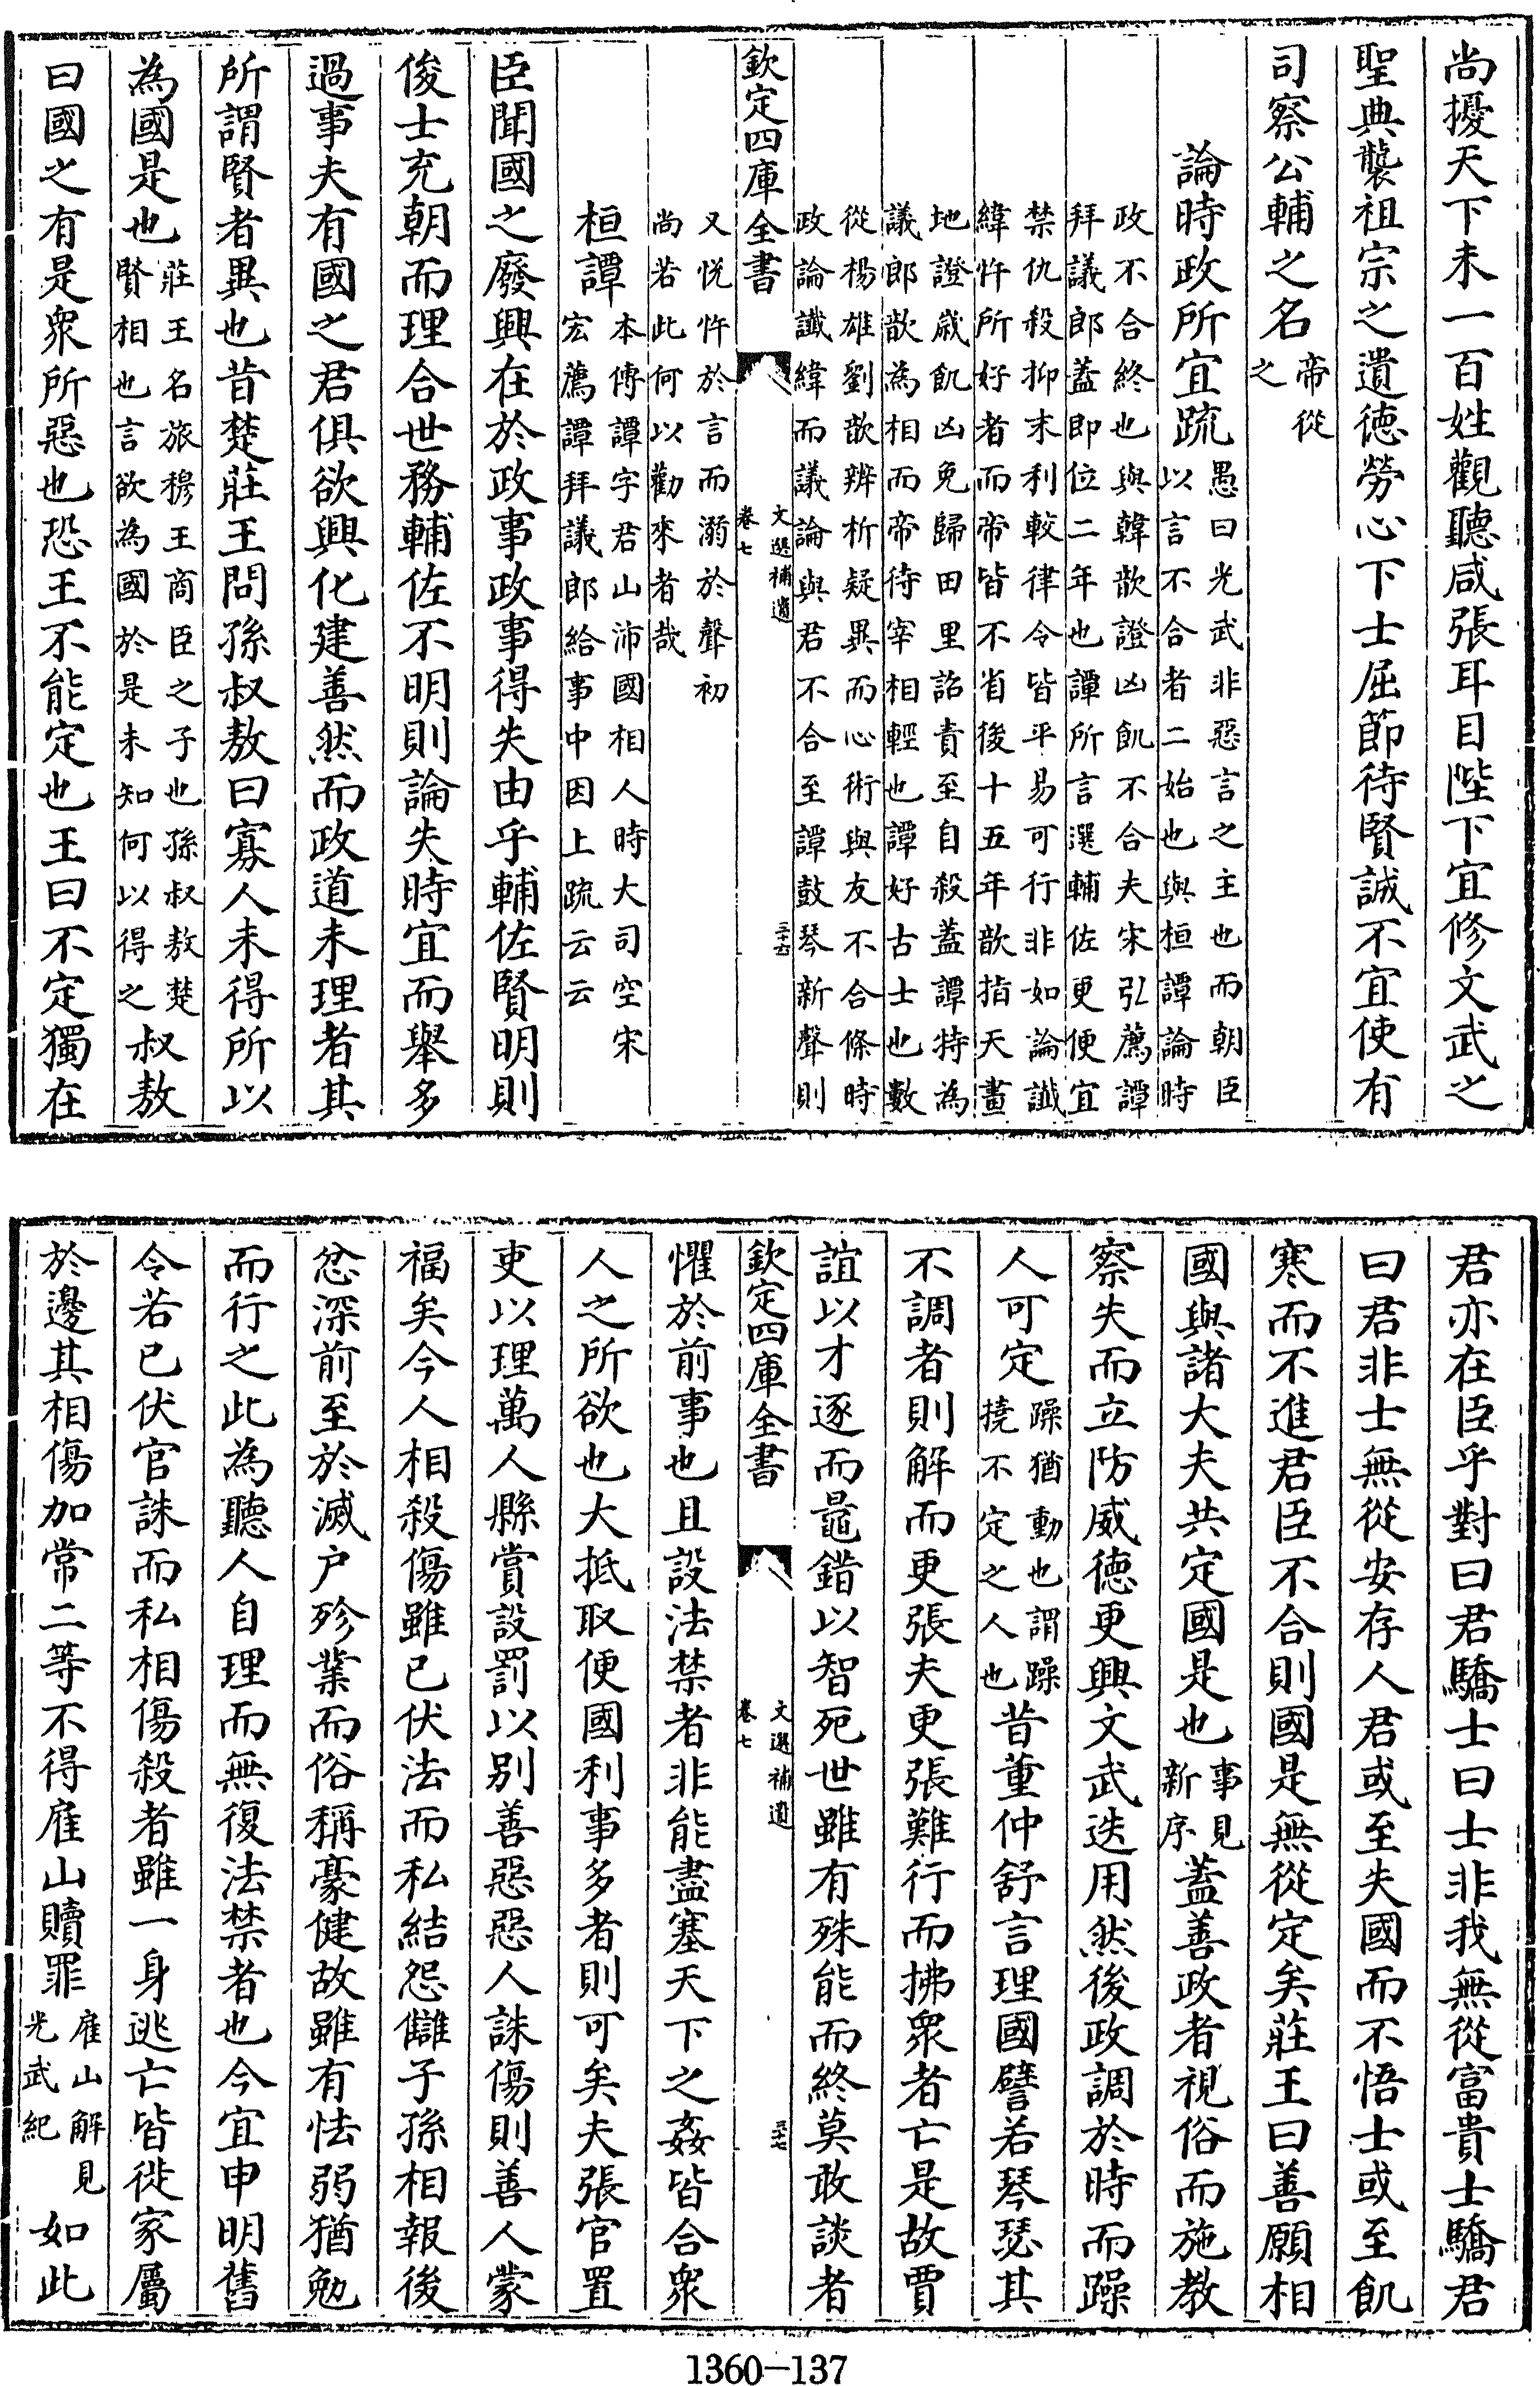 尚擾天下未一百姓觀聽咸張耳目陛下宜修文武之
聖典襲祖宗之遺德勞心下士屈節待賢誠不宜使有
司察公輔之名帝從
之
論時政所宜疏愚曰光武非惡言之主也而朝臣
以言不合者二始也與桓譚論時
政不合終也與韓歆證凶飢不合夫宋引薦譚
拜議郎蓋即位二年也譚所言選輔佐更便宜
禁仇殺抑末利較律令皆平易可行非如論讖
緯忤所好者而帝皆不省後十五年歆指天畫
地證歲飢凶免歸田里詔責至自殺蓋譚特為
議郎歆為相而帝待宰相輕也譚好古士也數
從楊雄劉歆辨析疑異而心術與友不合條時
政論讖緯而議論與君不合至譚鼓琴新聲則
欽定四庫全書
文選補遺
卷七
三十六
又悦忤於言而溺於聲初
尚若此何以勸來者哉
桓譚本傳譚字君山沛國相人時大司空宋
宏薦譚拜議郎給事中因上疏云云
臣聞國之廢興在於政事政事得失由乎輔佐賢明則
俊士充朝而理合世務輔佐不明則論失時宜而舉多
過事夫有國之君俱欲興化建善然而政道未理者其
所謂賢者異也昔楚莊王問孫叔敖曰寡人未得所以
為國是也莊王名旅穆王商臣之子也孫叔敖楚
賢相也言欲為國於是未知何以得之叔敖
曰國之有是衆所惡也恐王不能定也王曰不定獨在
君亦在臣乎對曰君驕士曰士非我無從富貴士驕君
曰君非士無從安存人君或至失國而不悟士或至飢
寒而不進君臣不合則國是無從定矣莊王曰善願相
國與諸大夫共定國是也事見
新序蓋善政者視俗而施教
察失而立防威德更興文武迭用然後政調於時而躁
人可定躁猶動也謂躁
撓不定之人也昔董仲舒言理國譬若琴瑟其
不調者則解而更張夫更張難行而拂衆者亡是故賈
誼以才逐而鼂錯以智死世雖有殊能而終莫敢談者
欽定四庫全書
文選補遺
卷七
三十七
懼於前事也且設法禁者非能盡塞天下之姦皆合衆
人之所欲也大抵取便國利事多者則可矣夫張官置
吏以理萬人縣賞設罰以別善惡惡人誅傷則善人蒙
福矣今人相殺傷雖已伏法而私結怨讎子孫相報後
忿深前至於滅户殄業而俗稱豪健故雖有怯弱猶勉
而行之此為聽人自理而無復法禁者也今宜申明舊
令若已伏官誅而私相傷殺者雖一身逃亡皆徙家屬
於邊其相傷加常二等不得雇山贖罪雇山解見
光武紀如此
1360-137